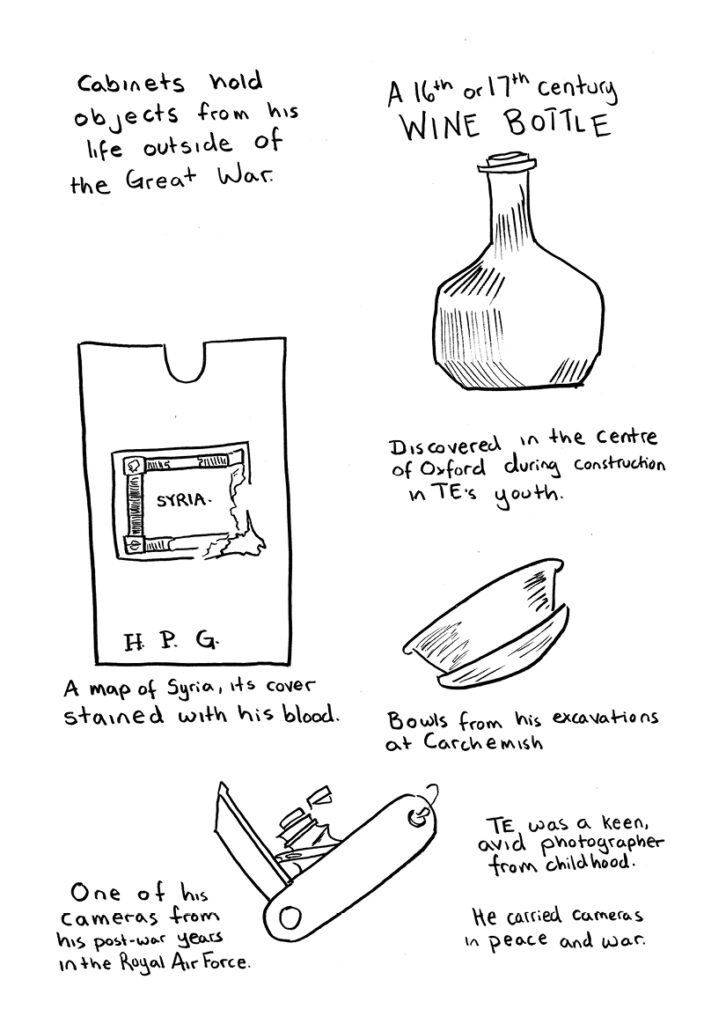 Cabinets hold
objects from his
life outside of
the Great War.
A 16th or 17th century
WINE BOTTLE
Discovered in the centre
of Oxford during construction
in TE's youth.
SYRIA.
H. P. G.
A map of Syria, its cover
stained with his blood.
Bowls from his excavations
at Carchemish
One of his
cameras from
his post-war years
in the Royal Air Force.
TE was a keen,
avid photographer
from childhood.
He carried cameras
in peace and war.